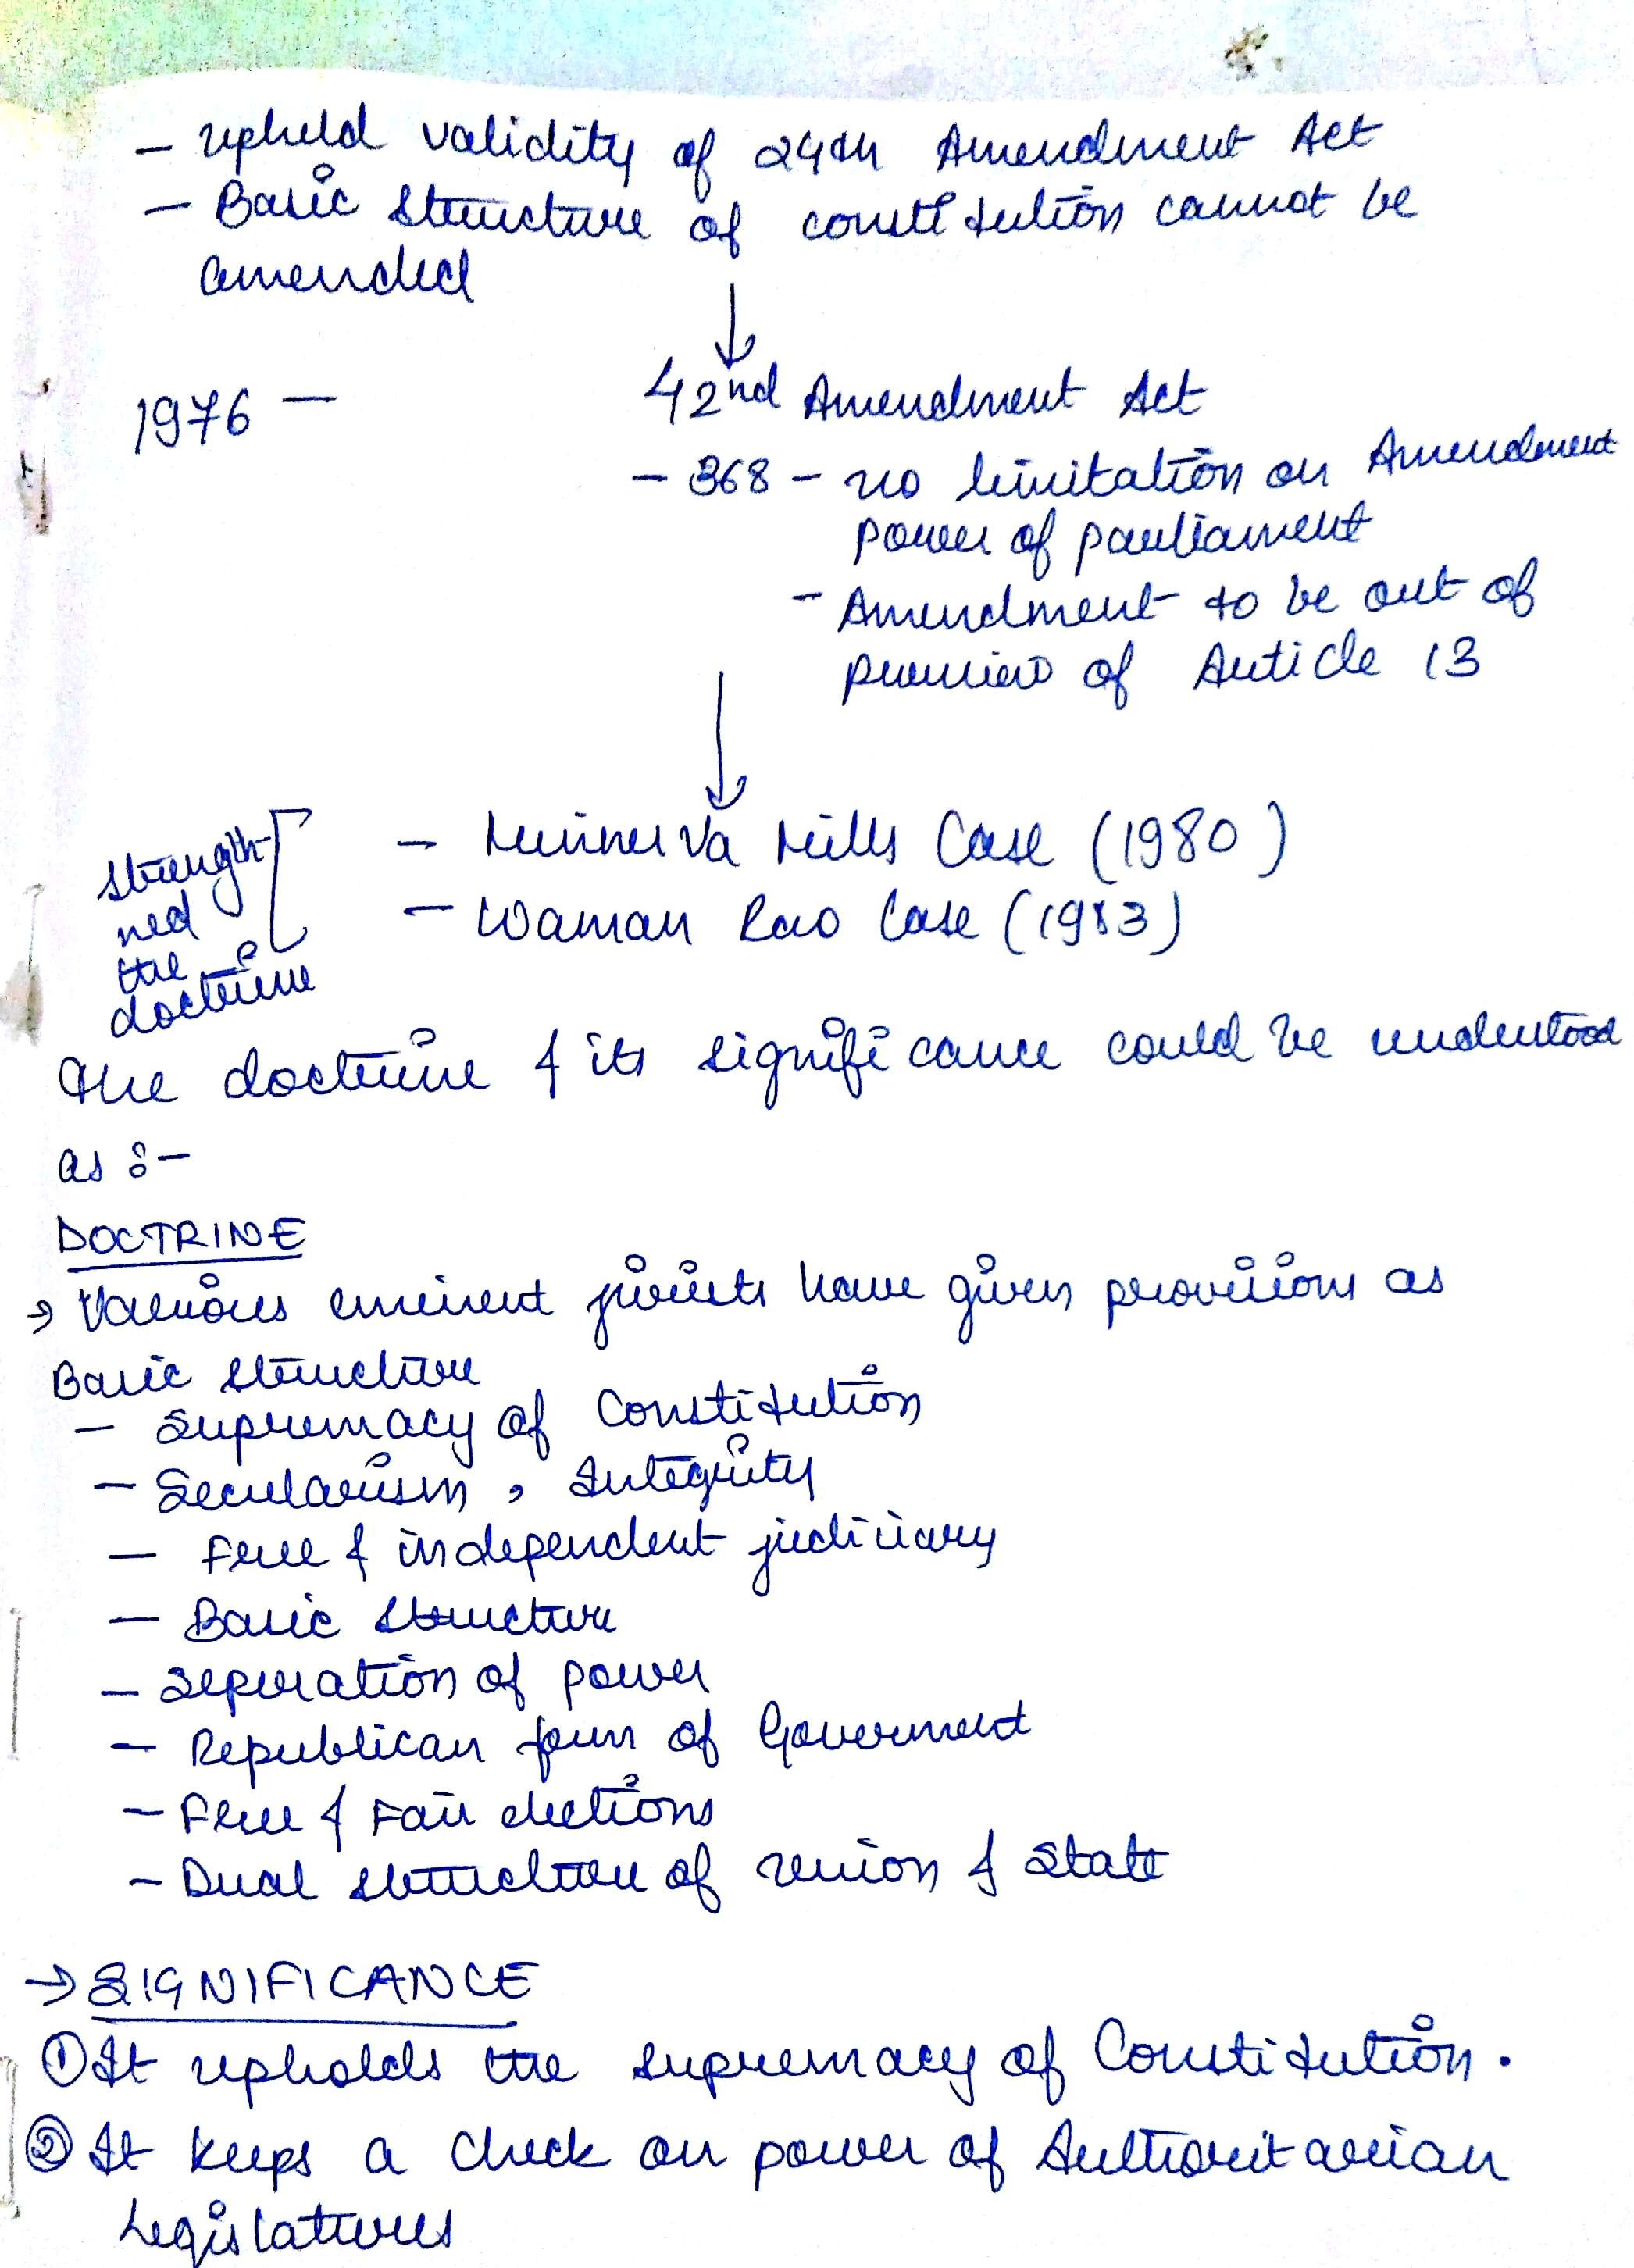 - upheld validity of 24th Amendment Act
- Basic Structure of constitution cannot be
amended
↓
1976 - 42nd Amendment Act
- 368 - no limitation on Amendment
power of parliament
- Amendment to be out of
purview of Article 13
↓
strength
ned
the
doctrine
- Minerva Mills Case (1980)
- Waman Rao Case (1983)
The doctrine & its significance could be understood
as :-
DOCTRINE
→ Various eminent jurists have given provisions as
Basic structure
- Supremacy of Constitution
- Secularism, Integrity
- Free & independent judiciary
- Basic structure
- Seperation of power
- Republican form of Government
- Free & Fair elections
- Dual structure of union & state
→ SIGNIFICANCE
① It upholds the supremacy of Constitution.
② It keeps a check on power of Authoritarian
Legislatures